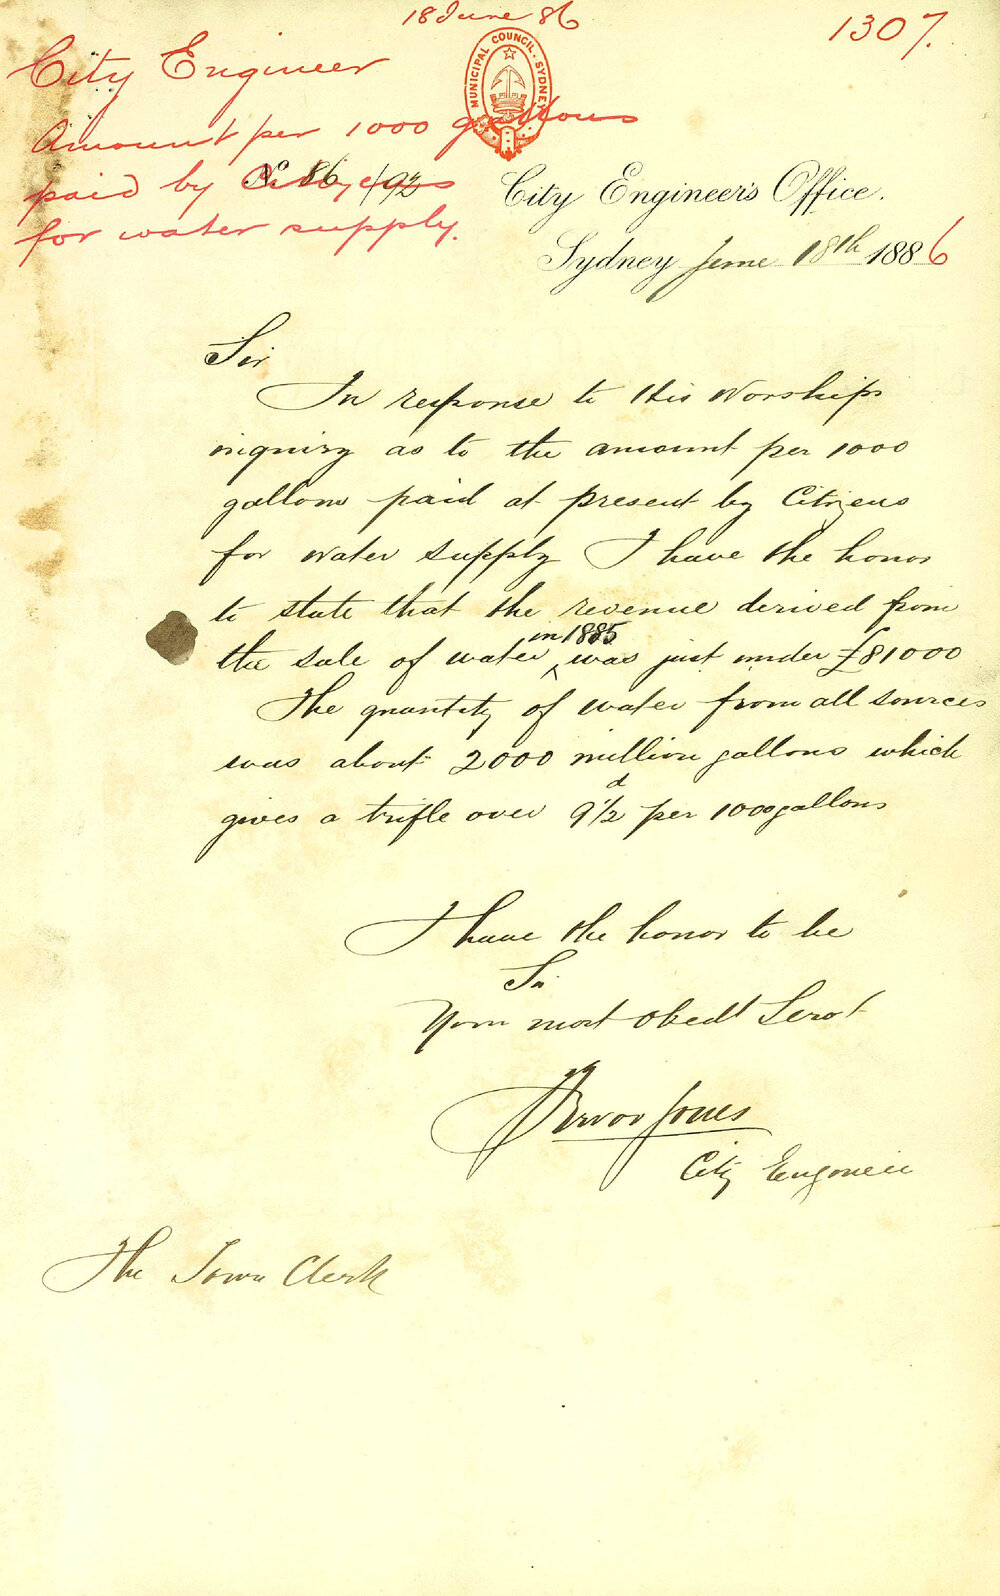 18 June 86
1307.
City Engineer
MUNICIPAL COUNCIL. SYDNEY
Amount per 1000 gallons
paid by Citizens
No. 86/92
for water supply.
City Engineer's Office.
Sydney June 18th 1886
Sir
In response to His Worships
inquiry as to the amount per 1000
gallons paid at present by Citizens
for water supply I have the honor
to state that the revenue derived from
the sale of water in 1885 was just under £81000
The quantity of water from all sources
was about 2000 million gallons which
gives a trifle over 9½d per 1000 gallons
I have the honor to be
Sir
Your most obedt Servt
Trevor Jones
City Engineer
The Town Clerk